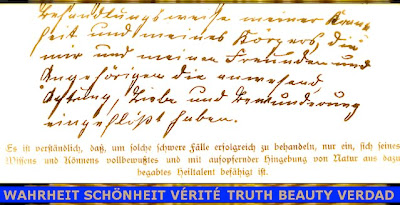 Behandlungsweise meiner Krank-
heit und meines Körpers, die
mir und meinen Freunden und
Angehörigen die anwesend
Achtung, Liebe und Bewunderung
eingeflößt haben.
Es ist verständlich, daß, um solche schwere Fälle erfolgreich zu behandeln, nur ein, sich seines
Wissens und Könnens vollbewußtes und mit aufopfernder Hingebung von Natur aus dazu
begabtes Heiltalent befähigt ist.
WAHRHEIT SCHÖNHEIT VÉRITÉ TRUTH BEAUTY VERDAD